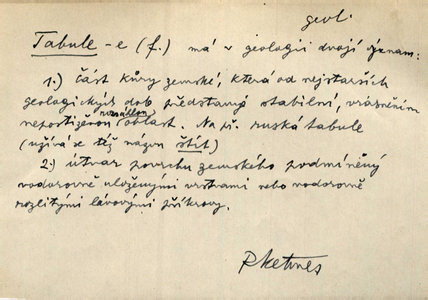 geol.
Tabule - e (f.) má v geologii dvojí význam:
1.) část kůry zemské, která od nejstarších
geologických dob představuje stabilní, vrásněním
rozsáhlou
nepostiženou oblast. Na př. ruská tabule
(užívá se též název štít)
2.) útvar povrchu zemského podmíněný
vodorovně uloženými vrstvami nebo vodorovně
rozlitými lávovými příkrovy.